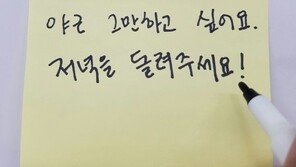 야근 그만하고 싶어요.
저녁을 돌려주세요!